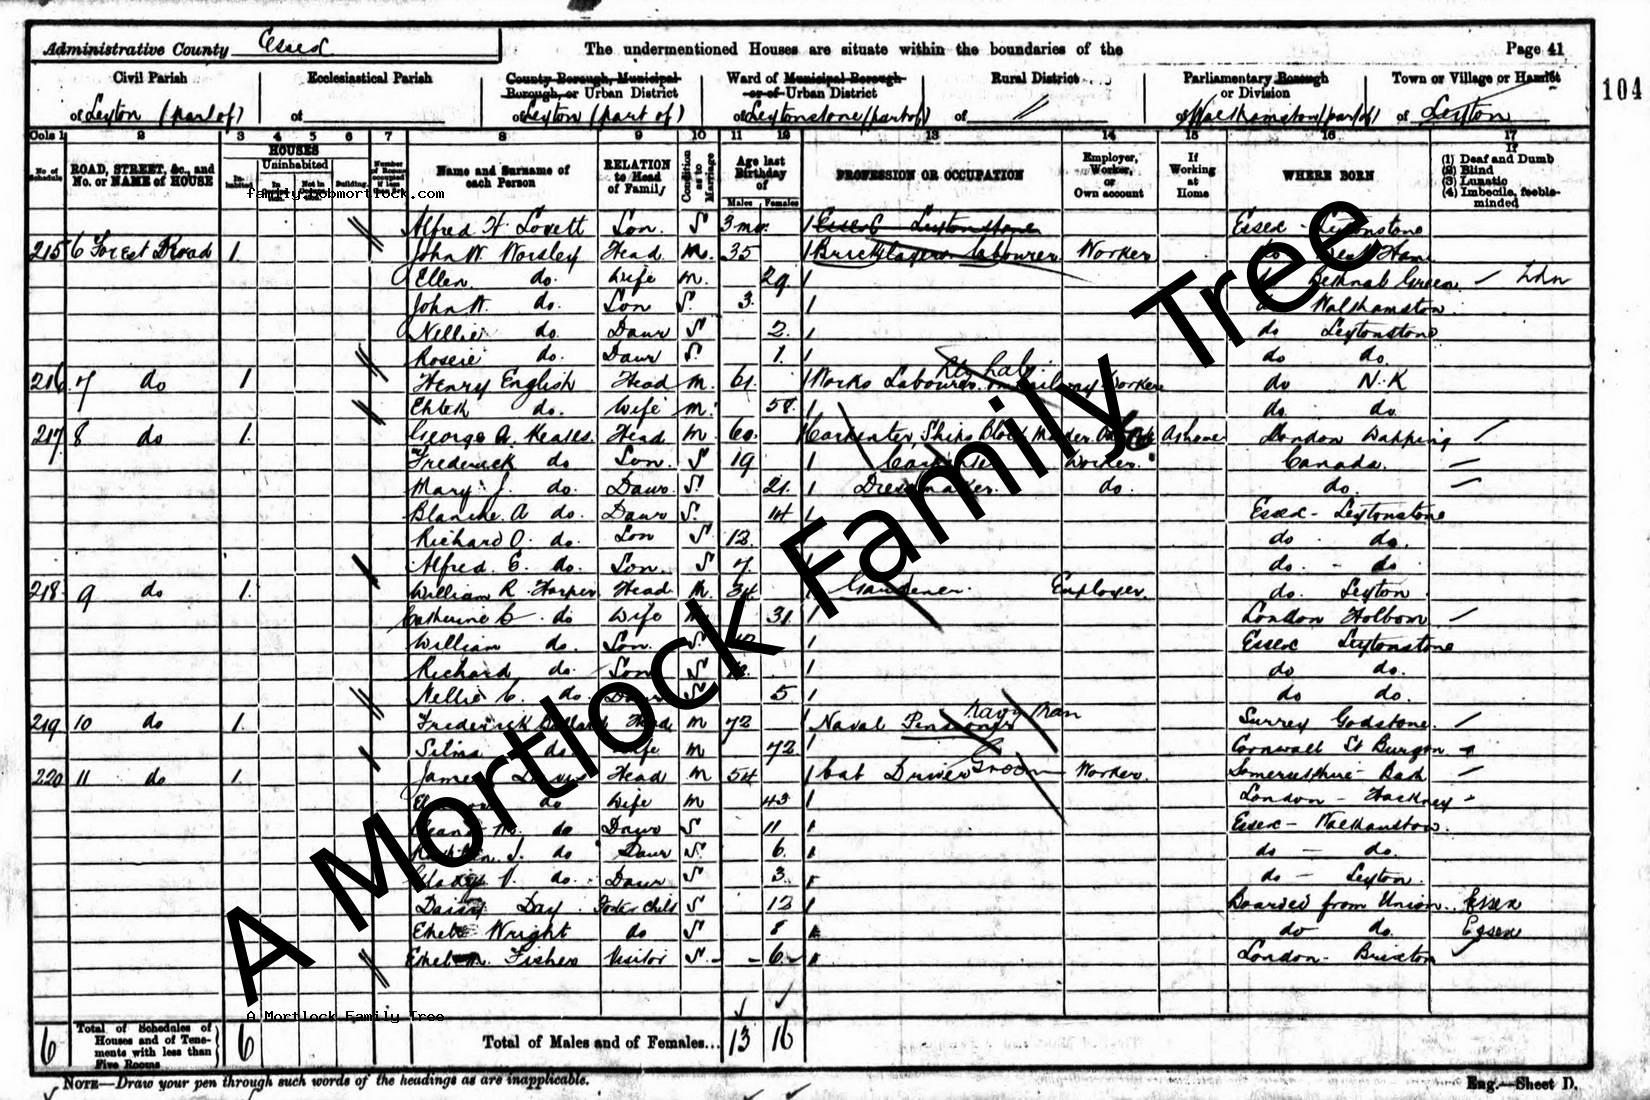 Administrative County Essex
The undermentioned Houses are situate within the boundaries of the
Page 41
104
Civil Parish
of Leyton (part of)
Ecclesiastical Parish
of
County Borough, Municipal
Borough, or Urban District
of Leyton (part of)
Ward of Municipal Borough
or of Urban District
of Leytonstone (part of)
Rural District
of
Parliamentary Borough
or Division
of Walthamstow (part of)
Town or Village or Hamlet
of Leyton
Cols 1 2 3 4 5 6 7 8 9 10 11 12 13 14 15 16 17
No. of Schedule
ROAD, STREET, &c., and No. or NAME of HOUSE
HOUSES
Inhabited
Uninhabited
Building
Name and Surname of each Person
RELATION to Head of Family
Condition as to Marriage
Age last Birthday of
Males Females
PROFESSION OR OCCUPATION
Employer, Worker, or Own account
If Working at Home
WHERE BORN
If
(1) Deaf and Dumb
(2) Blind
(3) Lunatic
(4) Imbecile, feeble-minded
family.bobmortlock.com
Alfred H Lovett Son S 3 mo. Essex Leytonstone Essex - Leytonstone
215 6 Forest Road 1. John W Worsley Head M. 35 Bricklayers labourer Worker do West Ham
Ellen do. Wife M. 29 Bethnal Green Ldn
John W. do. Son S. 3. do Walthamstow
Nellie do. Daur S 2. do Leytonstone
Rosie do. Daur S. 1. do do.
216 7 do 1 Henry English Head M. 61. Works Labourer on Railway Worker do N.K
do. Wife M. 58. do. do.
217 8 do 1. George A. Head M 60. Carpenter, Ships Block At home London Wapping
Frederick do Son S 19 Worker. Canada.
Mary J. do. Daur S. 21. Dressmaker. do. do.
Blanche A do. Daur S. 14 Essex - Leytonstone
Richard O. do. Son S 12. do. do.
Alfred E. do. Son. S 7. do. - do
218 9 do 1. William R. Harper Head M. 34 Gardener. Employer. do. Leyton
Catherine C. do Wife M 31. London Holborn
William do. Son. S Essex Leytonstone
Richard do. Son S do do.
Nellie C. do. Daur S 5. do do.
219 10 do 1. Frederick Head M 72 Naval Pensioner Navy Man Surrey Godstone.
Selina do Wife M 72. Cornwall St
220 11 do 1. James Head M 54 Cab Driver Groom Worker. Somersetshire - Bath
do Wife M 43 London - Hackney
do Daur S 11 Essex - Walthamstow.
do Daur S. 6. do - do.
do. Daur S 3. do - Leyton.
Daisy Day. Foster Child S 12 Boarded from Union. Essex
Ethel Wright do S 8 do do. Essex
Ethel M. Fisher Visitor S. 6 London - Brixton
A Mortlock Family Tree
A Mortlock Family Tree
6 Total of Schedules of Houses and of Tenements with less than Five Rooms 6 Total of Males and of Females... 13 16
NOTE—Draw your pen through such words of the headings as are inapplicable.
Eng.—Sheet D.